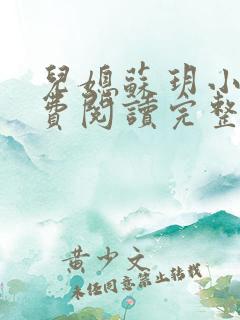 兒媳蘇玥小
費閱讀完整
黃少文
未经同意禁止转载